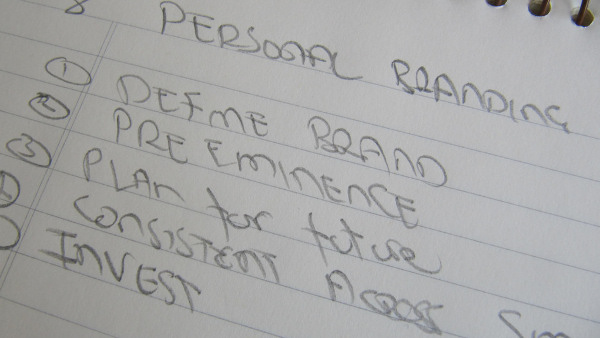 8 PERSONAL BRANDING
① DEFINE BRAND
② PRE EMINENCE
③ PLAN for future
CONSISTENT Across Sm
INVEST